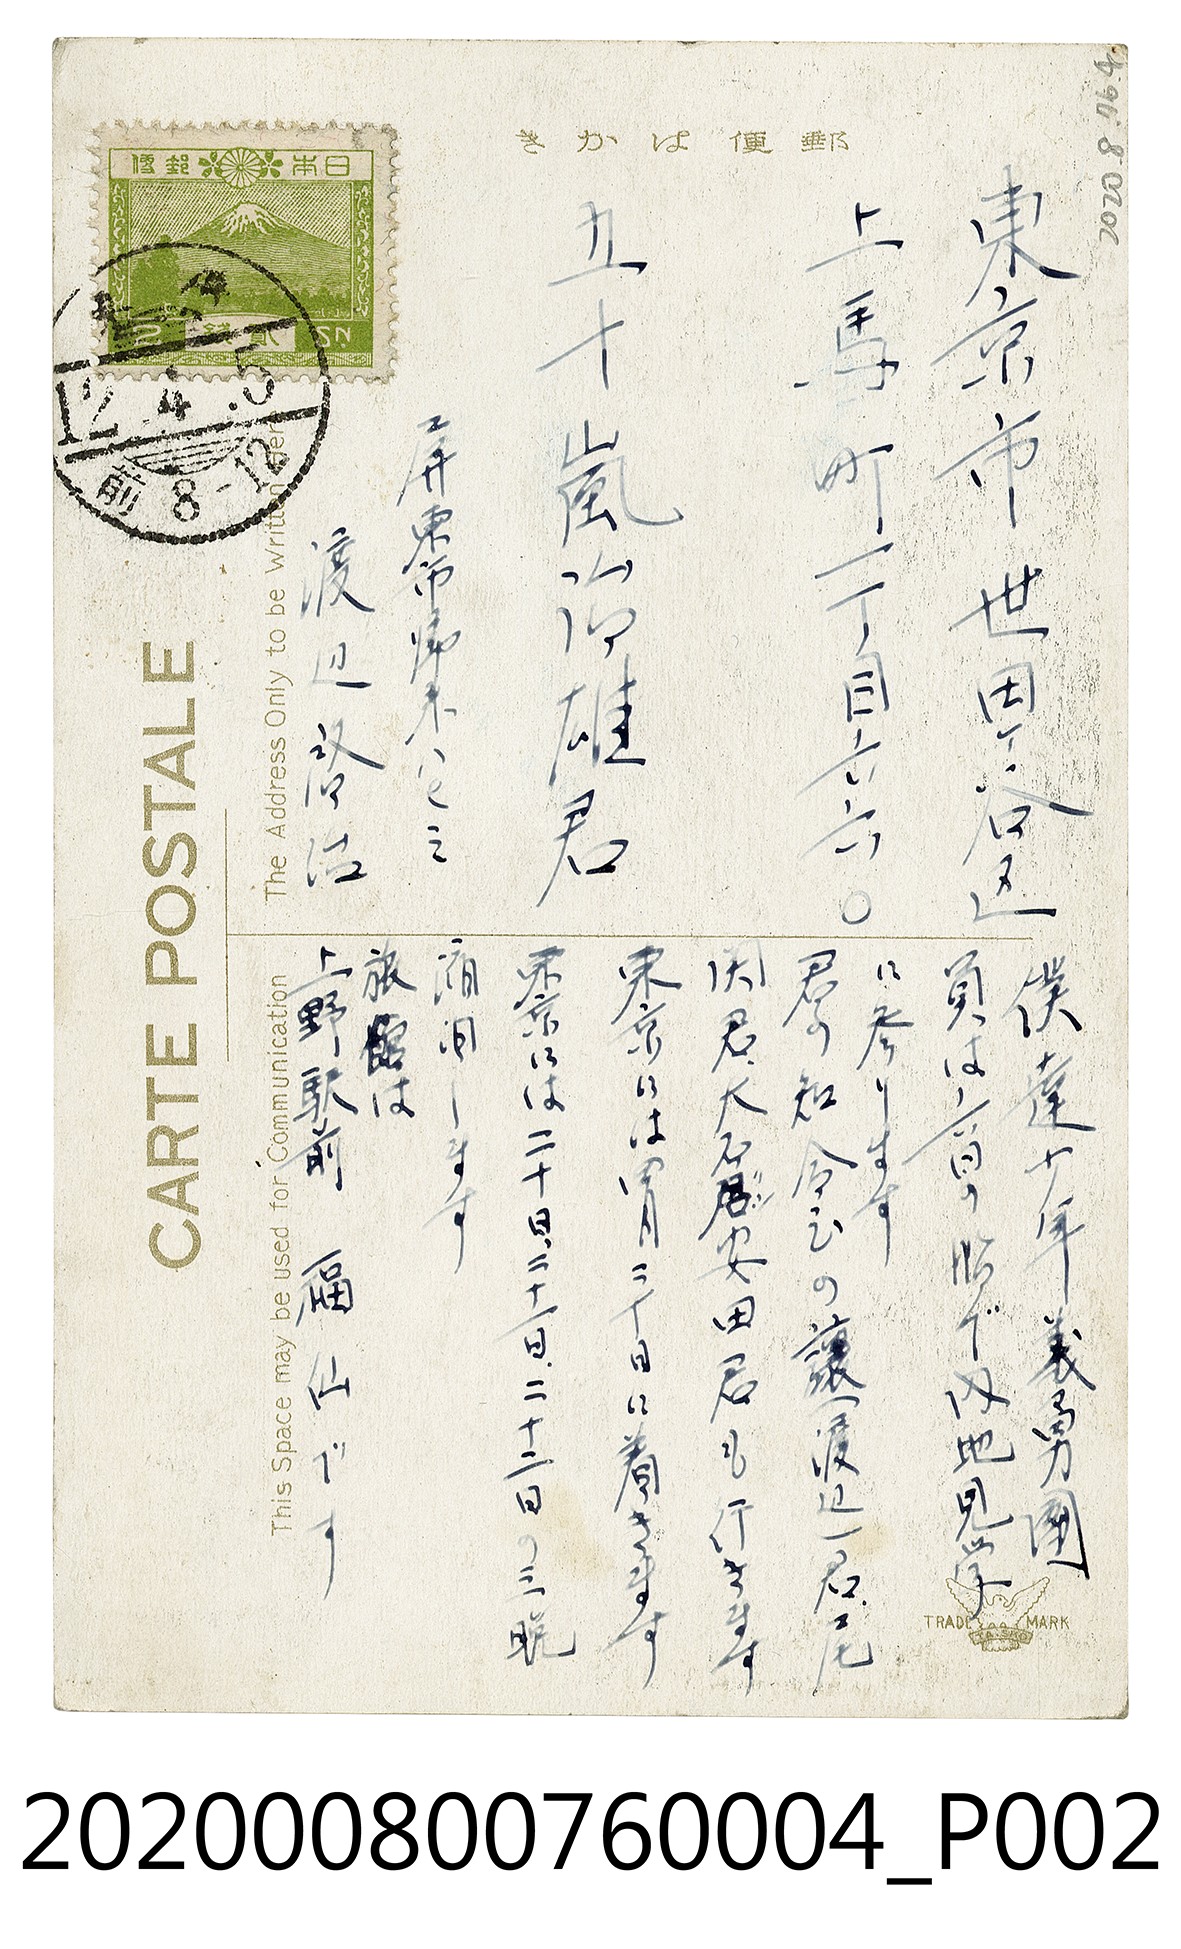 2020.8.76.4
郵便はがき
日本郵便
貳銭
2 SN
12.4.5
前8-12
東京市世田ヶ谷区
上馬町一丁目六六〇
五十嵐治雄君
屏東市帰来
渡辺啓治
CARTE POSTALE
The Address Only to be Written Here
This Space may be used for Communication
僕達少年義勇團
員は六百の脂で内地見学
に参ります
君の知合ひの譲渡辺一君、尾
関君、大石君、安田君も行きます
東京には四月二十日に着きます
東京には二十日、二十一日、二十二日の三晩
宿泊します
旅館は
上野駅前 福仙です
TRADE MARK
TAISHO
202000800760004_P002